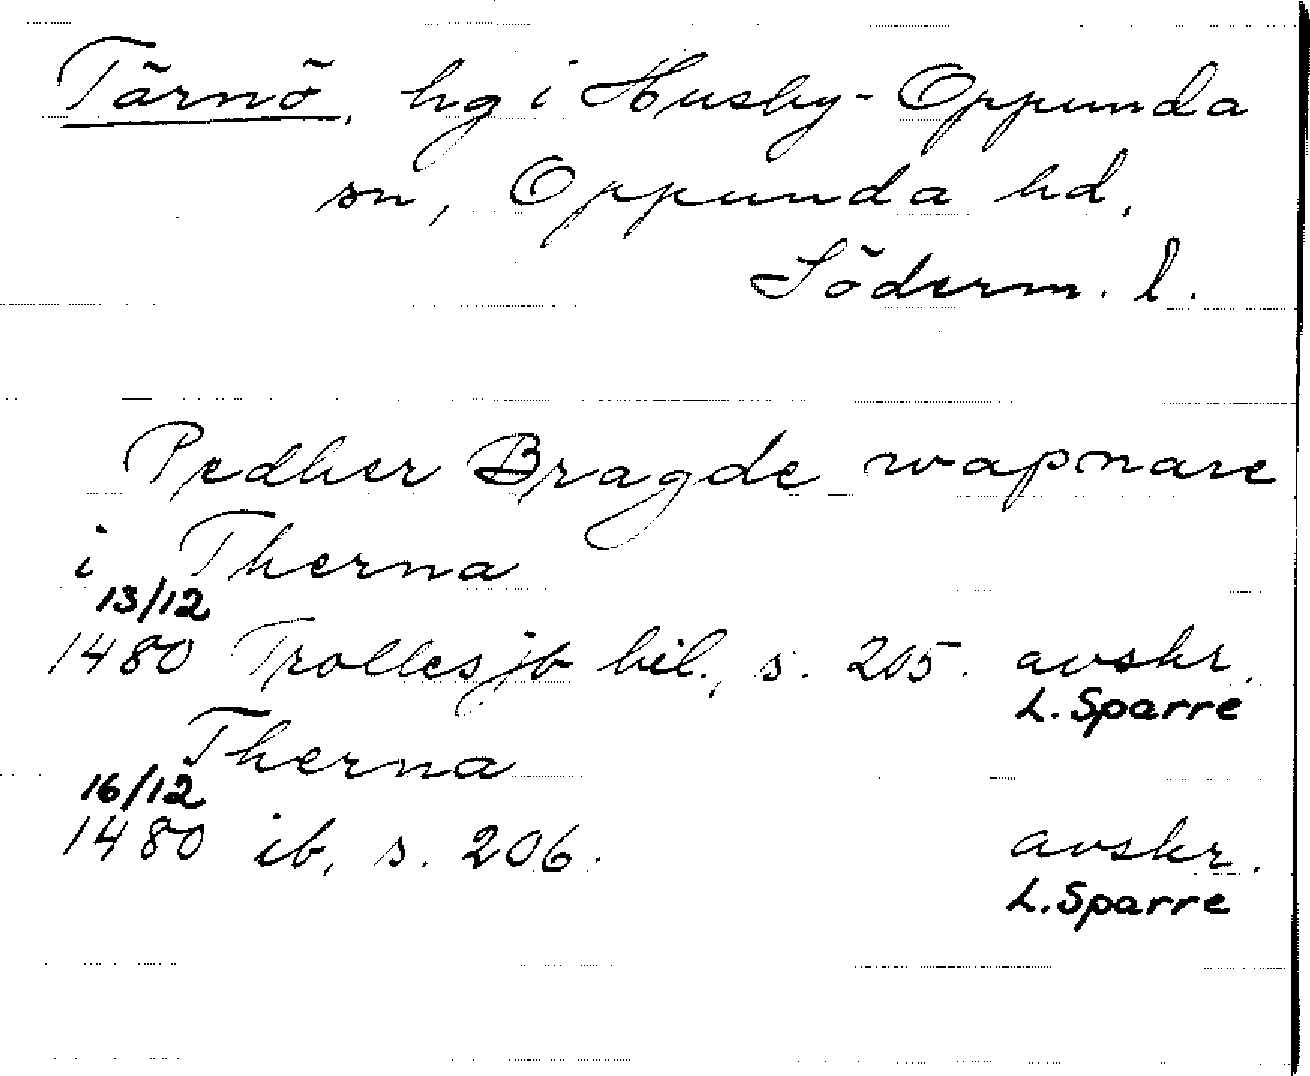 Tärnö, hg i Husby-Oppunda
sn, Oppunda hd,
Söderm. l.
Pedher Bragde wapnare
i Therna
13/12
1480 Trollesjb bil., s. 205. avskr.
L. Sparre
Therna
16/12
1480 ib, s. 206. avskr.
L. Sparre